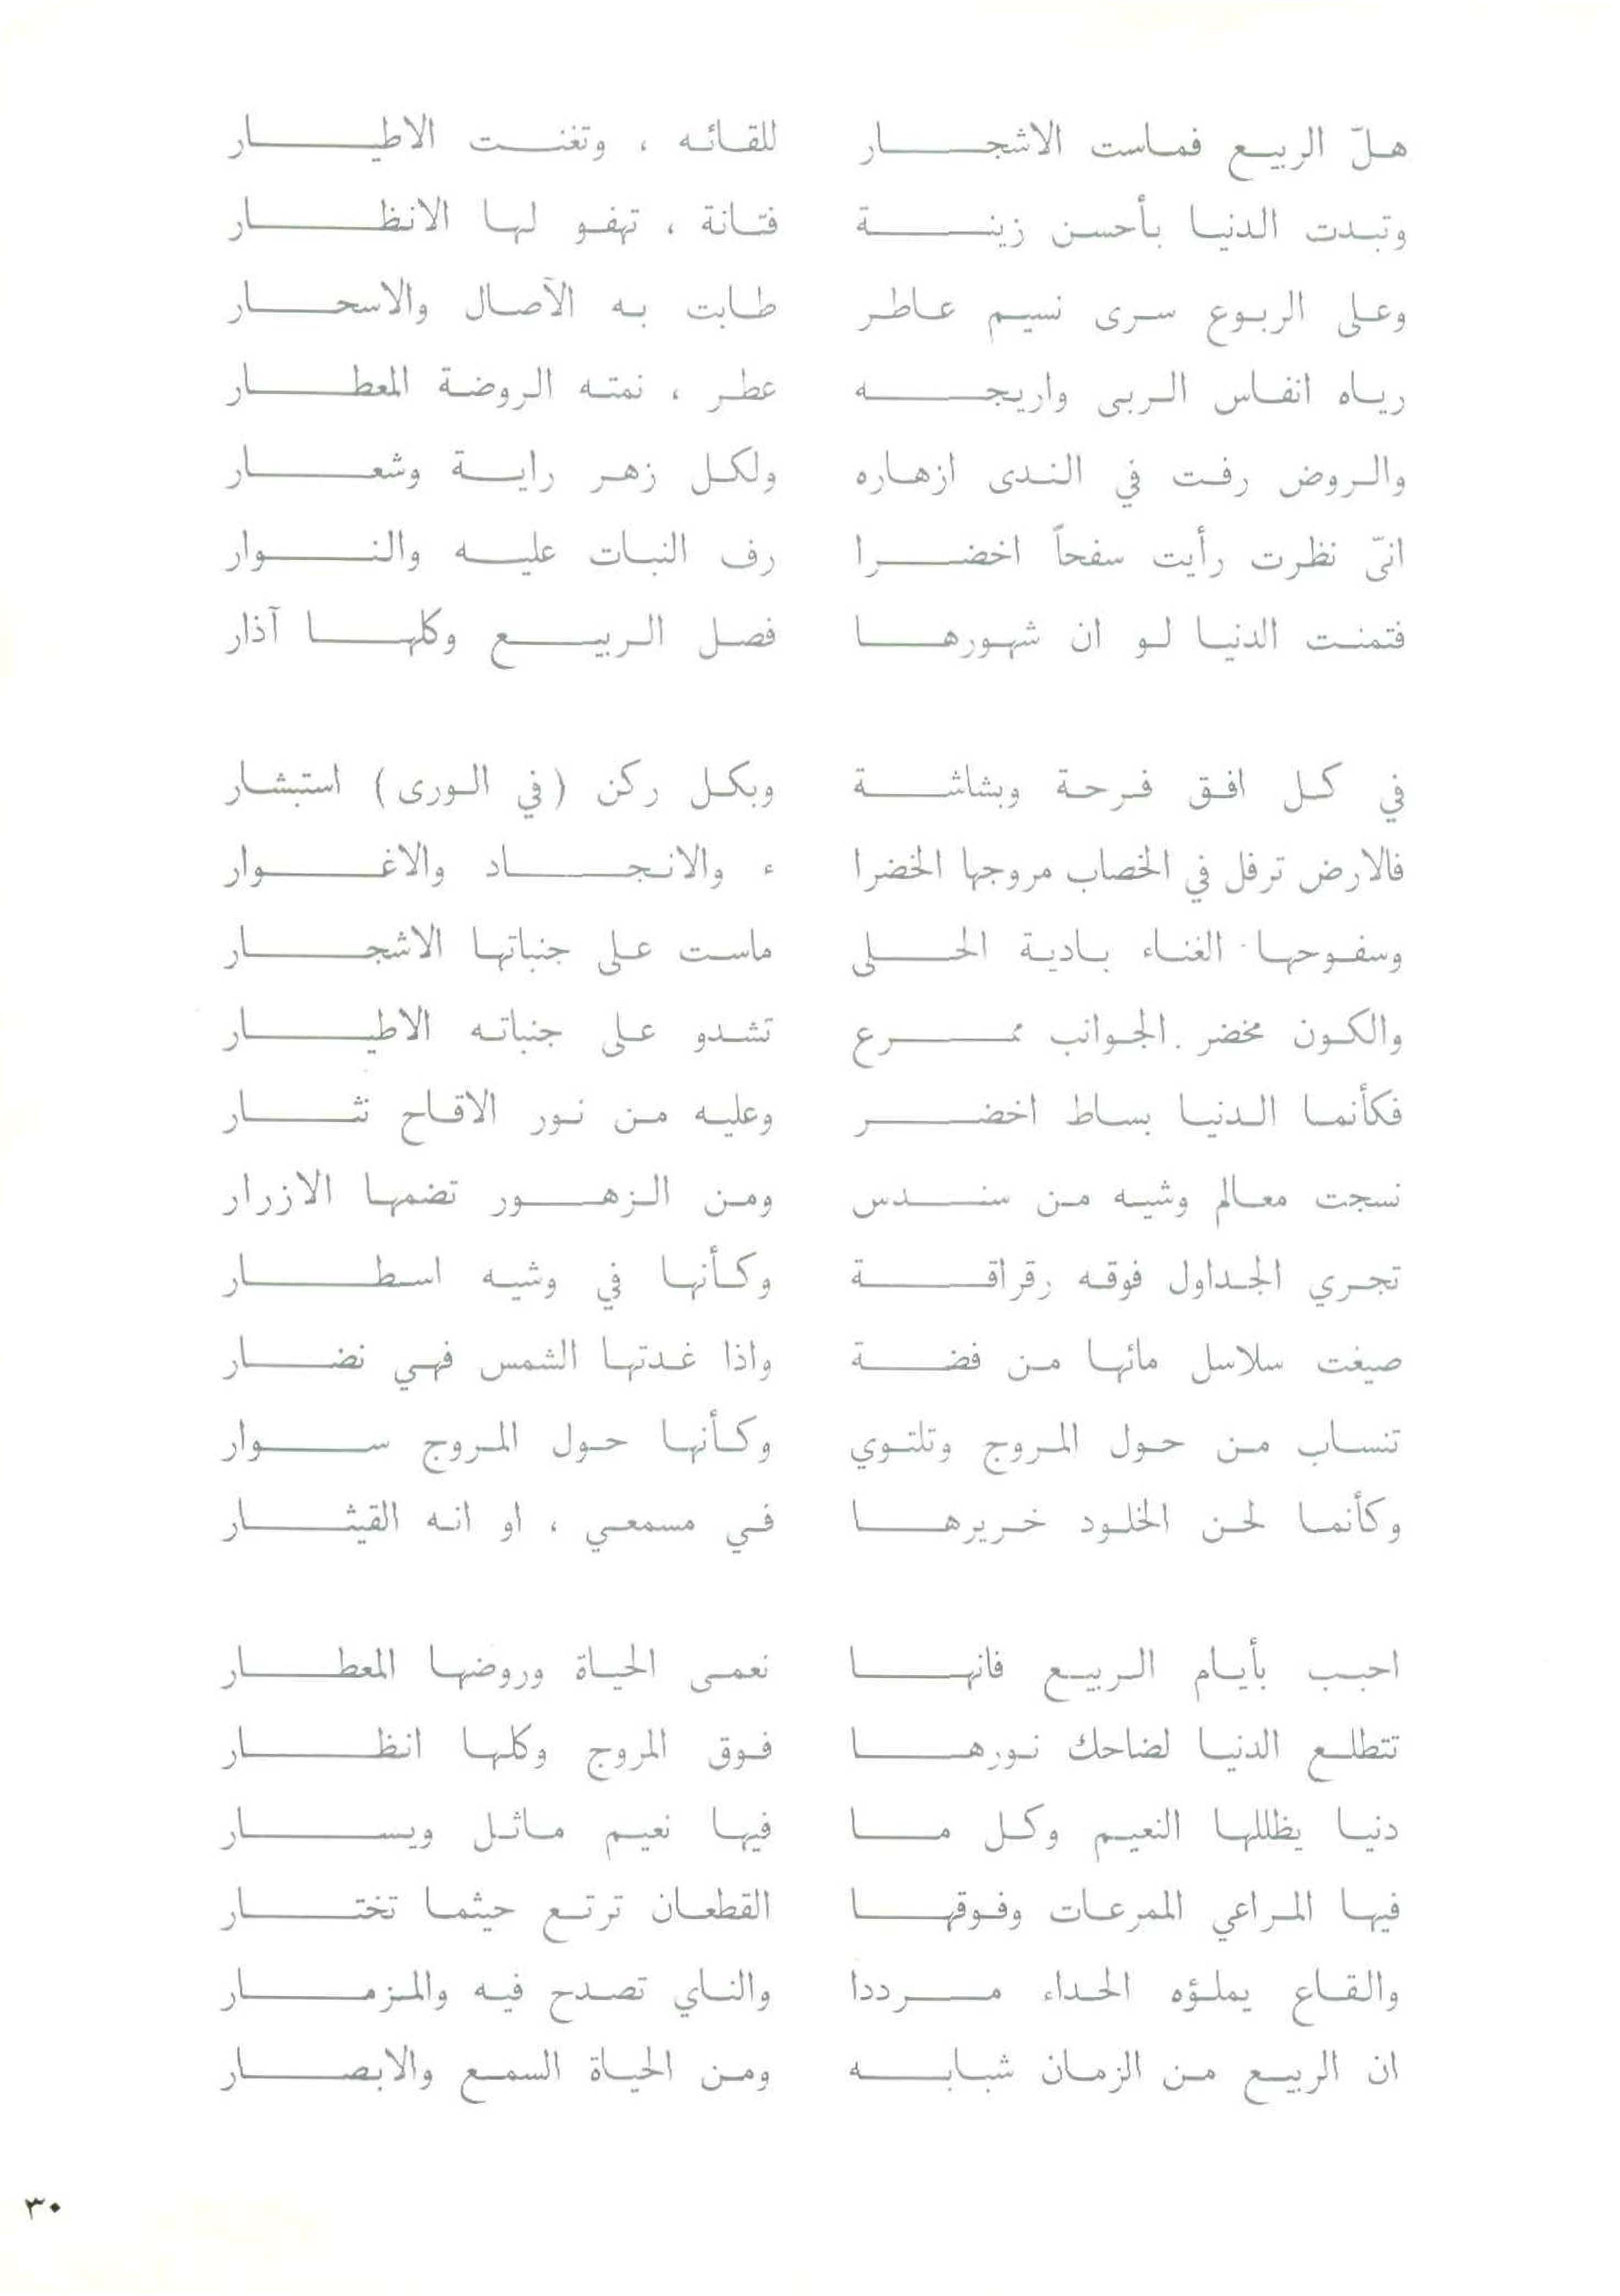 هلّ الربيع فماست الاشجار للقائه ، وتغنت الاطيار
وتبدت الدنيا بأحسن زينة فتانة ، تهفو لها الانظار
وعلى الربوع سرى نسيم عاطر طابت به الآصال والاسحار
رياه انفاس الربى واريجه عطر ، نمته الروضة المعطار
والروض رفت في الندى ازهاره ولكل زهر راية وشعار
انىّ نظرت رأيت سفحاً اخضرا رف النبات عليه والنوار
فتمنت الدنيا لو ان شهورها فصل الربيع وكلها آذار
في كل افق فرحة وبشاشة وبكل ركن (في الورى) استبشار
فالارض ترفل في الخصاب مروجها الخضرا ء والانجاد والاغوار
وسفوحها الغناء بادية الحلى ماست على جنباتها الاشجار
والكون مخضر الجوانب ممرع تشدو على جنباته الاطيار
فكأنما الدنيا بساط اخضر وعليه من نور الاقاح نثار
نسجت معالم وشيه من سندس ومن الزهور تضمها الازرار
تجري الجداول فوقه رقراقة وكأنها في وشيه اسطار
صيغت سلاسل مائها من فضة واذا غدتها الشمس فهي نضار
تنساب من حول المروج وتلتوي وكأنها حول المروج سوار
وكأنما لحن الخلود خريرها في مسمعي ، او انه القيثار
احبب بأيام الربيع فانها نعمى الحياة وروضها المعطار
تتطلع الدنيا لضاحك نورها فوق المروج وكلها انظار
دنيا يظللها النعيم وكل ما فيها نعيم ماثل ويسار
فيها المراعي الممرعات وفوقها القطعان ترتع حيثما تختار
والقاع يملؤه الحداء مرددا والناي تصدح فيه والمزمار
ان الربيع من الزمان شبابه ومن الحياة السمع والابصار
٣٠